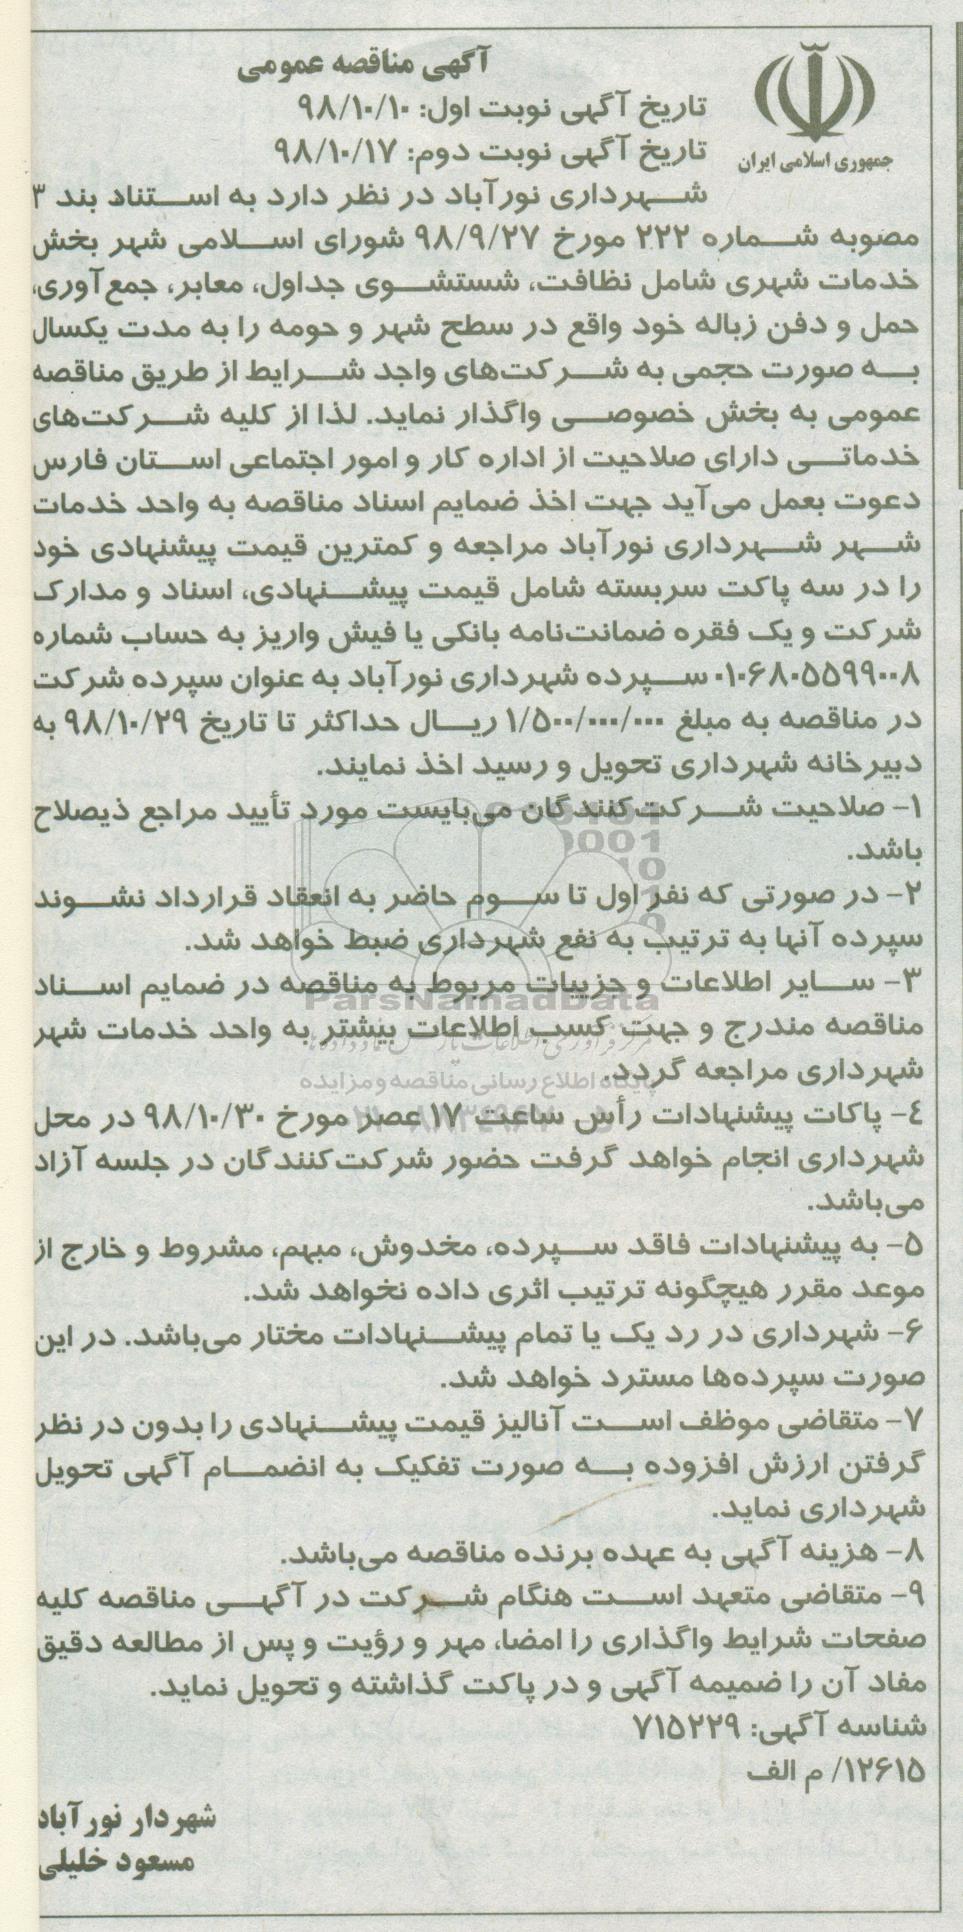 جمهوری اسلامی ایران
آگهی مناقصه عمومی
تاریخ آگهی نوبت اول: ۹۸/۱۰/۱۰
تاریخ آگهی نوبت دوم: ۹۸/۱۰/۱۷
شهرداری نورآباد در نظر دارد به استناد بند ۳
مصوبه شماره ۲۲۲ مورخ ۹۸/۹/۲۷ شورای اسلامی شهر بخش
خدمات شهری شامل نظافت، شستشوی جداول، معابر، جمع‌آوری،
حمل و دفن زباله خود واقع در سطح شهر و حومه را به مدت یکسال
به صورت حجمی به شرکت‌های واجد شرایط از طریق مناقصه
عمومی به بخش خصوصی واگذار نماید. لذا از کلیه شرکت‌های
خدماتی دارای صلاحیت از اداره کار و امور اجتماعی استان فارس
دعوت بعمل می‌آید جهت اخذ ضمایم اسناد مناقصه به واحد خدمات
شهر شهرداری نورآباد مراجعه و کمترین قیمت پیشنهادی خود
را در سه پاکت سربسته شامل قیمت پیشنهادی، اسناد و مدارک
شرکت و یک فقره ضمانت‌نامه بانکی یا فیش واریز به حساب شماره
۰۱۰۶۸۰۵۵۹۹۰۰۸ سپرده شهرداری نورآباد به عنوان سپرده شرکت
در مناقصه به مبلغ ۱/۵۰۰/۰۰۰/۰۰۰ ریال حداکثر تا تاریخ ۹۸/۱۰/۲۹ به
دبیرخانه شهرداری تحویل و رسید اخذ نمایند.
۱- صلاحیت شرکت‌کنندگان می‌بایست مورد تأیید مراجع ذیصلاح
باشد.
۲- در صورتی که نفر اول تا سوم حاضر به انعقاد قرارداد نشوند
سپرده آنها به ترتیب به نفع شهرداری ضبط خواهد شد.
۳- سایر اطلاعات و جزییات مربوط به مناقصه در ضمایم اسناد
ParsNamadData
مناقصه مندرج و جهت کسب اطلاعات بیشتر به واحد خدمات شهر
شهرداری مراجعه گردد.
پایگاه اطلاع رسانی مناقصه و مزایده
۴- پاکات پیشنهادات رأس ساعت ۱۷ عصر مورخ ۹۸/۱۰/۳۰ در محل
شهرداری انجام خواهد گرفت حضور شرکت‌کنندگان در جلسه آزاد
می‌باشد.
۵- به پیشنهادات فاقد سپرده، مخدوش، مبهم، مشروط و خارج از
موعد مقرر هیچگونه ترتیب اثری داده نخواهد شد.
۶- شهرداری در رد یک یا تمام پیشنهادات مختار می‌باشد. در این
صورت سپرده‌ها مسترد خواهد شد.
۷- متقاضی موظف است آنالیز قیمت پیشنهادی را بدون در نظر
گرفتن ارزش افزوده به صورت تفکیک به انضمام آگهی تحویل
شهرداری نماید.
۸- هزینه آگهی به عهده برنده مناقصه می‌باشد.
۹- متقاضی متعهد است هنگام شرکت در آگهی مناقصه کلیه
صفحات شرایط واگذاری را امضا، مهر و رؤیت و پس از مطالعه دقیق
مفاد آن را ضمیمه آگهی و در پاکت گذاشته و تحویل نماید.
شناسه آگهی: ۷۱۵۲۲۹
۱۲۶۱۵/ م الف
شهردار نورآباد
مسعود خلیلی